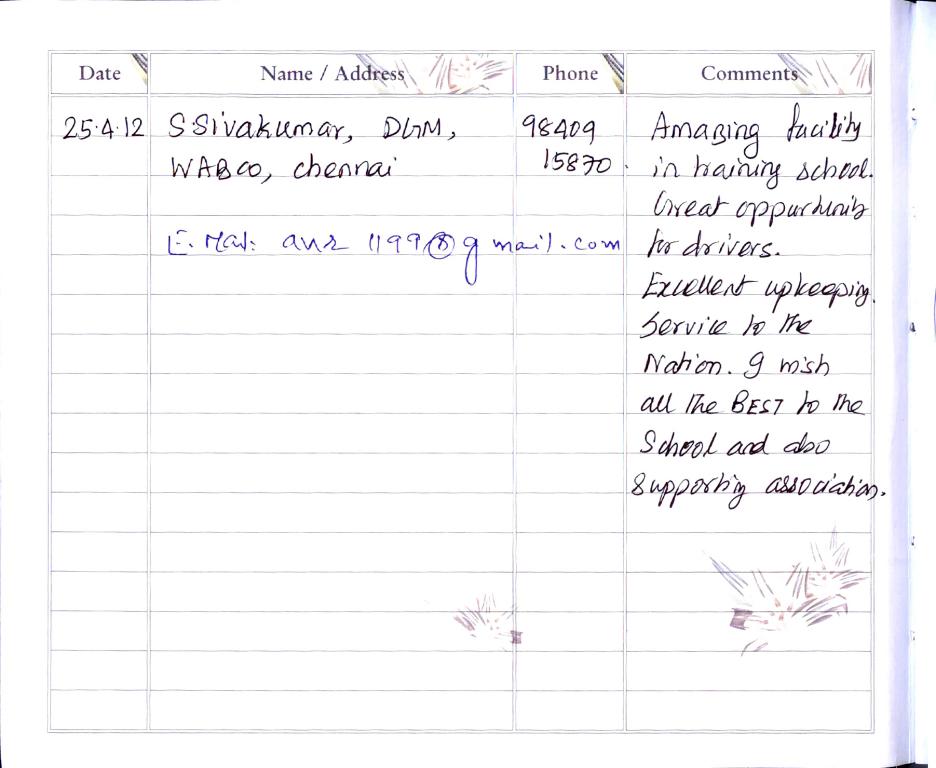 Date Name / Address Phone Comments
25.4.12 S Sivakumar, DGM, 98409 Amazing facility
WABCO, chennai 15870. in training school.
Great opportunity
for drivers.
E. Mail: 1199@gmail.com
Excellent upkeeping.
Service to the
Nation. I wish
all the BEST to the
School and also
Supporting association.